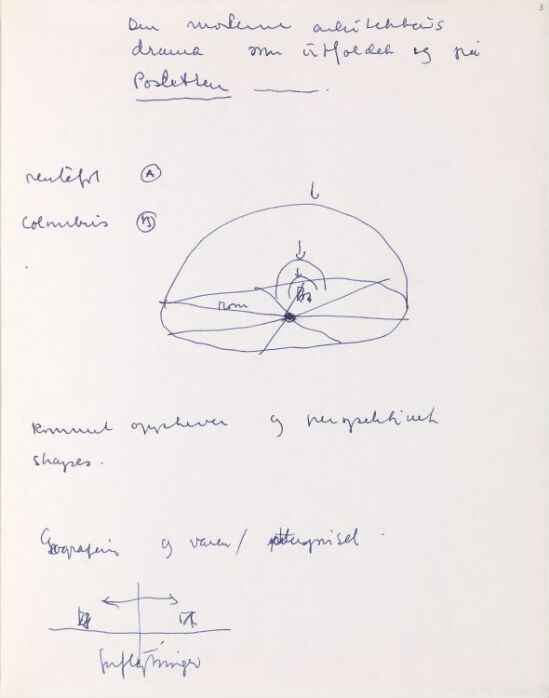 3
Den moderne arkitekturs
drama som utfoldet og på
Posletten
renteføt A
Columbus B
rom
Rommet opphever og perspektivet
skapes.
Geografien og varen/
Innflytninger